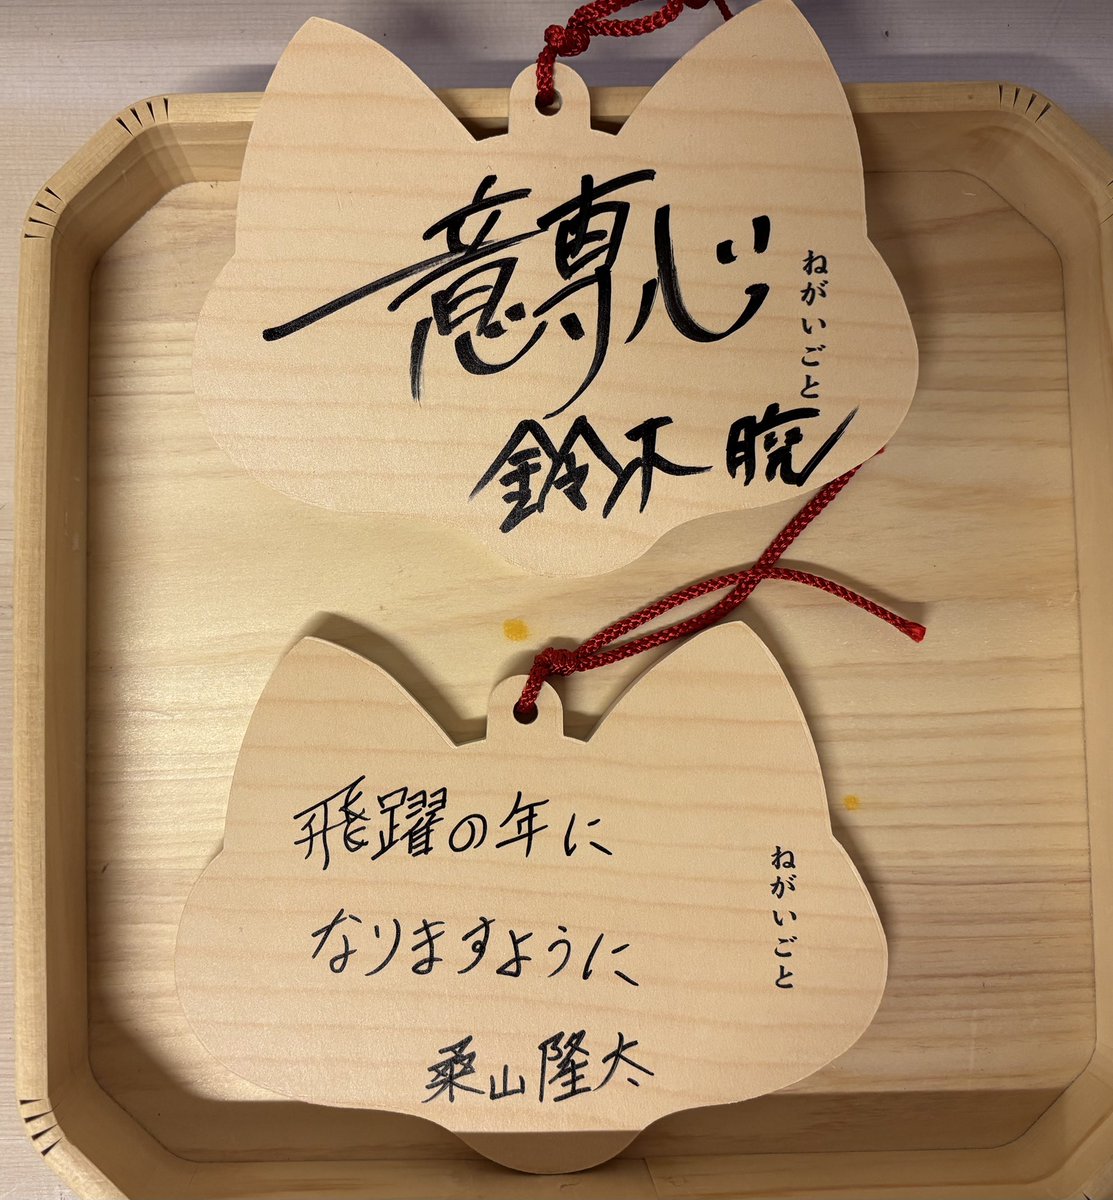 一意専心
ねがいごと
鈴木 曉
飛躍の年に
なりますように
ねがいごと
桑山隆太